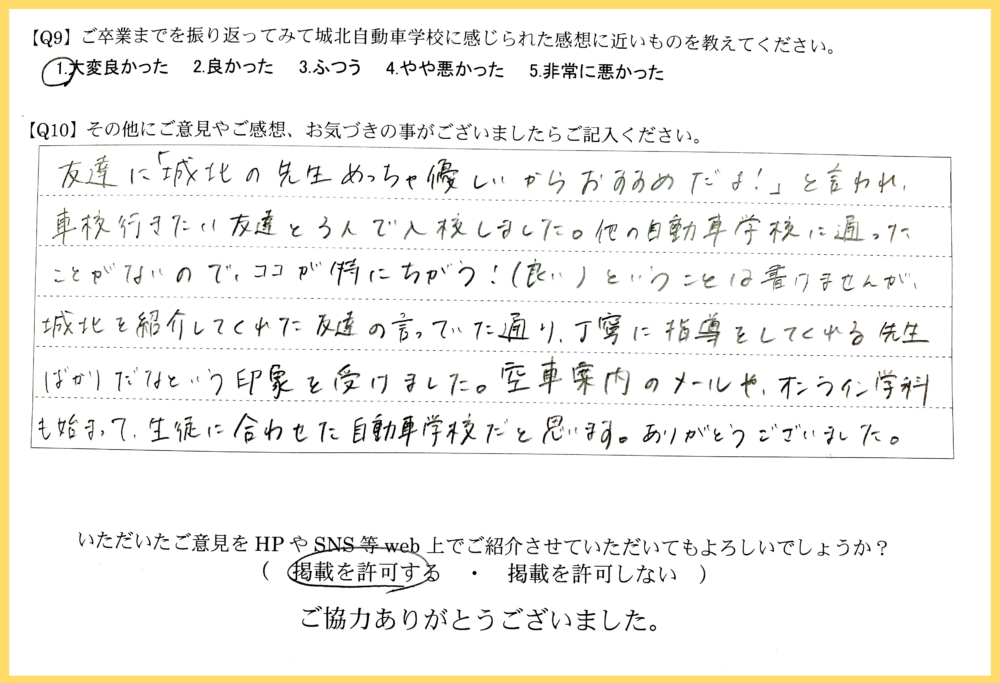 【Q9】ご卒業までを振り返ってみて城北自動車学校に感じられた感想に近いものを教えてください。
1.大変良かった 2.良かった 3.ふつう 4.やや悪かった 5.非常に悪かった
【Q10】その他にご意見やご感想、お気づきの事がございましたらご記入ください。
友達に「城北の先生めっちゃ優しいからおすすめだよ!」と言われ、
車校行きたい友達と3人で入校しました。他の自動車学校に通った
ことがないので、ココが特にちがう!(良い)ということは書けませんが、
城北を紹介してくれた友達の言っていた通り、丁寧に指導をしてくれる先生
ばかりだなという印象を受けました。空車案内のメールや、オンライン学科
も始まって、生徒に合わせた自動車学校だと思います。ありがとうございました。
いただいたご意見をHPやSNS等web上でご紹介させていただいてもよろしいでしょうか?
( 掲載を許可する ・ 掲載を許可しない )
ご協力ありがとうございました。